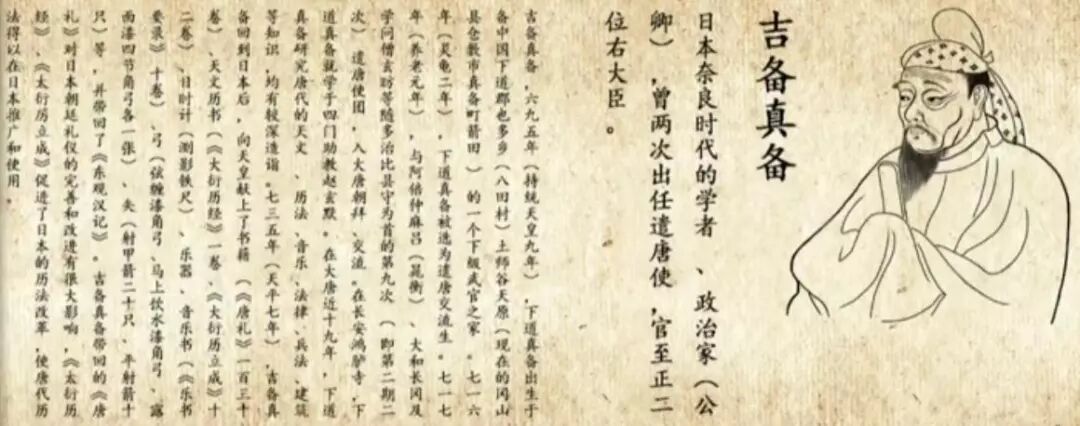 吉备真备
日本奈良时代的学者、政治家（公
卿），曾两次出任遣唐使，官至正二
位右大臣。
吉备真备，六九五年（持统天皇九年），下道真备出生于
备中国下道郡也多乡（八田村）土师谷天原（现在的冈山
县仓敷市真备町箭田）的一个下级武官之家。七一六
年（灵龟二年），下道真备被选为遣唐交流生。七一七
年（养老元年），与阿倍仲麻吕（晁衡）、大和长冈及
学问僧玄昉等随多治比县守为首的第九次（即第二期二
次）遣唐使团，入大唐朝拜、交流。在长安鸿胪寺，下
道真备就学于四门助教赵玄默。在大唐近十九年，下道
真备研究唐代的天文、历法、音乐、法律、兵法、建筑
等知识，均有较深造诣。七三五年（天平七年），吉备真
备回到日本后，向天皇献上了书籍（《唐礼》一百三十
卷）、天文历书（《大衍历经》一卷、《大衍历立成》十
二卷）、日时计（测影铁尺）、乐器、音乐书（《乐书
要录》十卷）、弓（弦缠漆角弓、马上饮水漆角弓、露
面漆四节角弓各一张）、矢（射甲箭二十只、平射箭十
只）等，并带回了《东观汉记》。吉备真备带回的《唐
礼》对日本朝廷礼仪的完善和改进有很大影响，《太衍历
经》、《太衍历立成》促进了日本的历法改革，使唐代历
法得以在日本推广和使用。